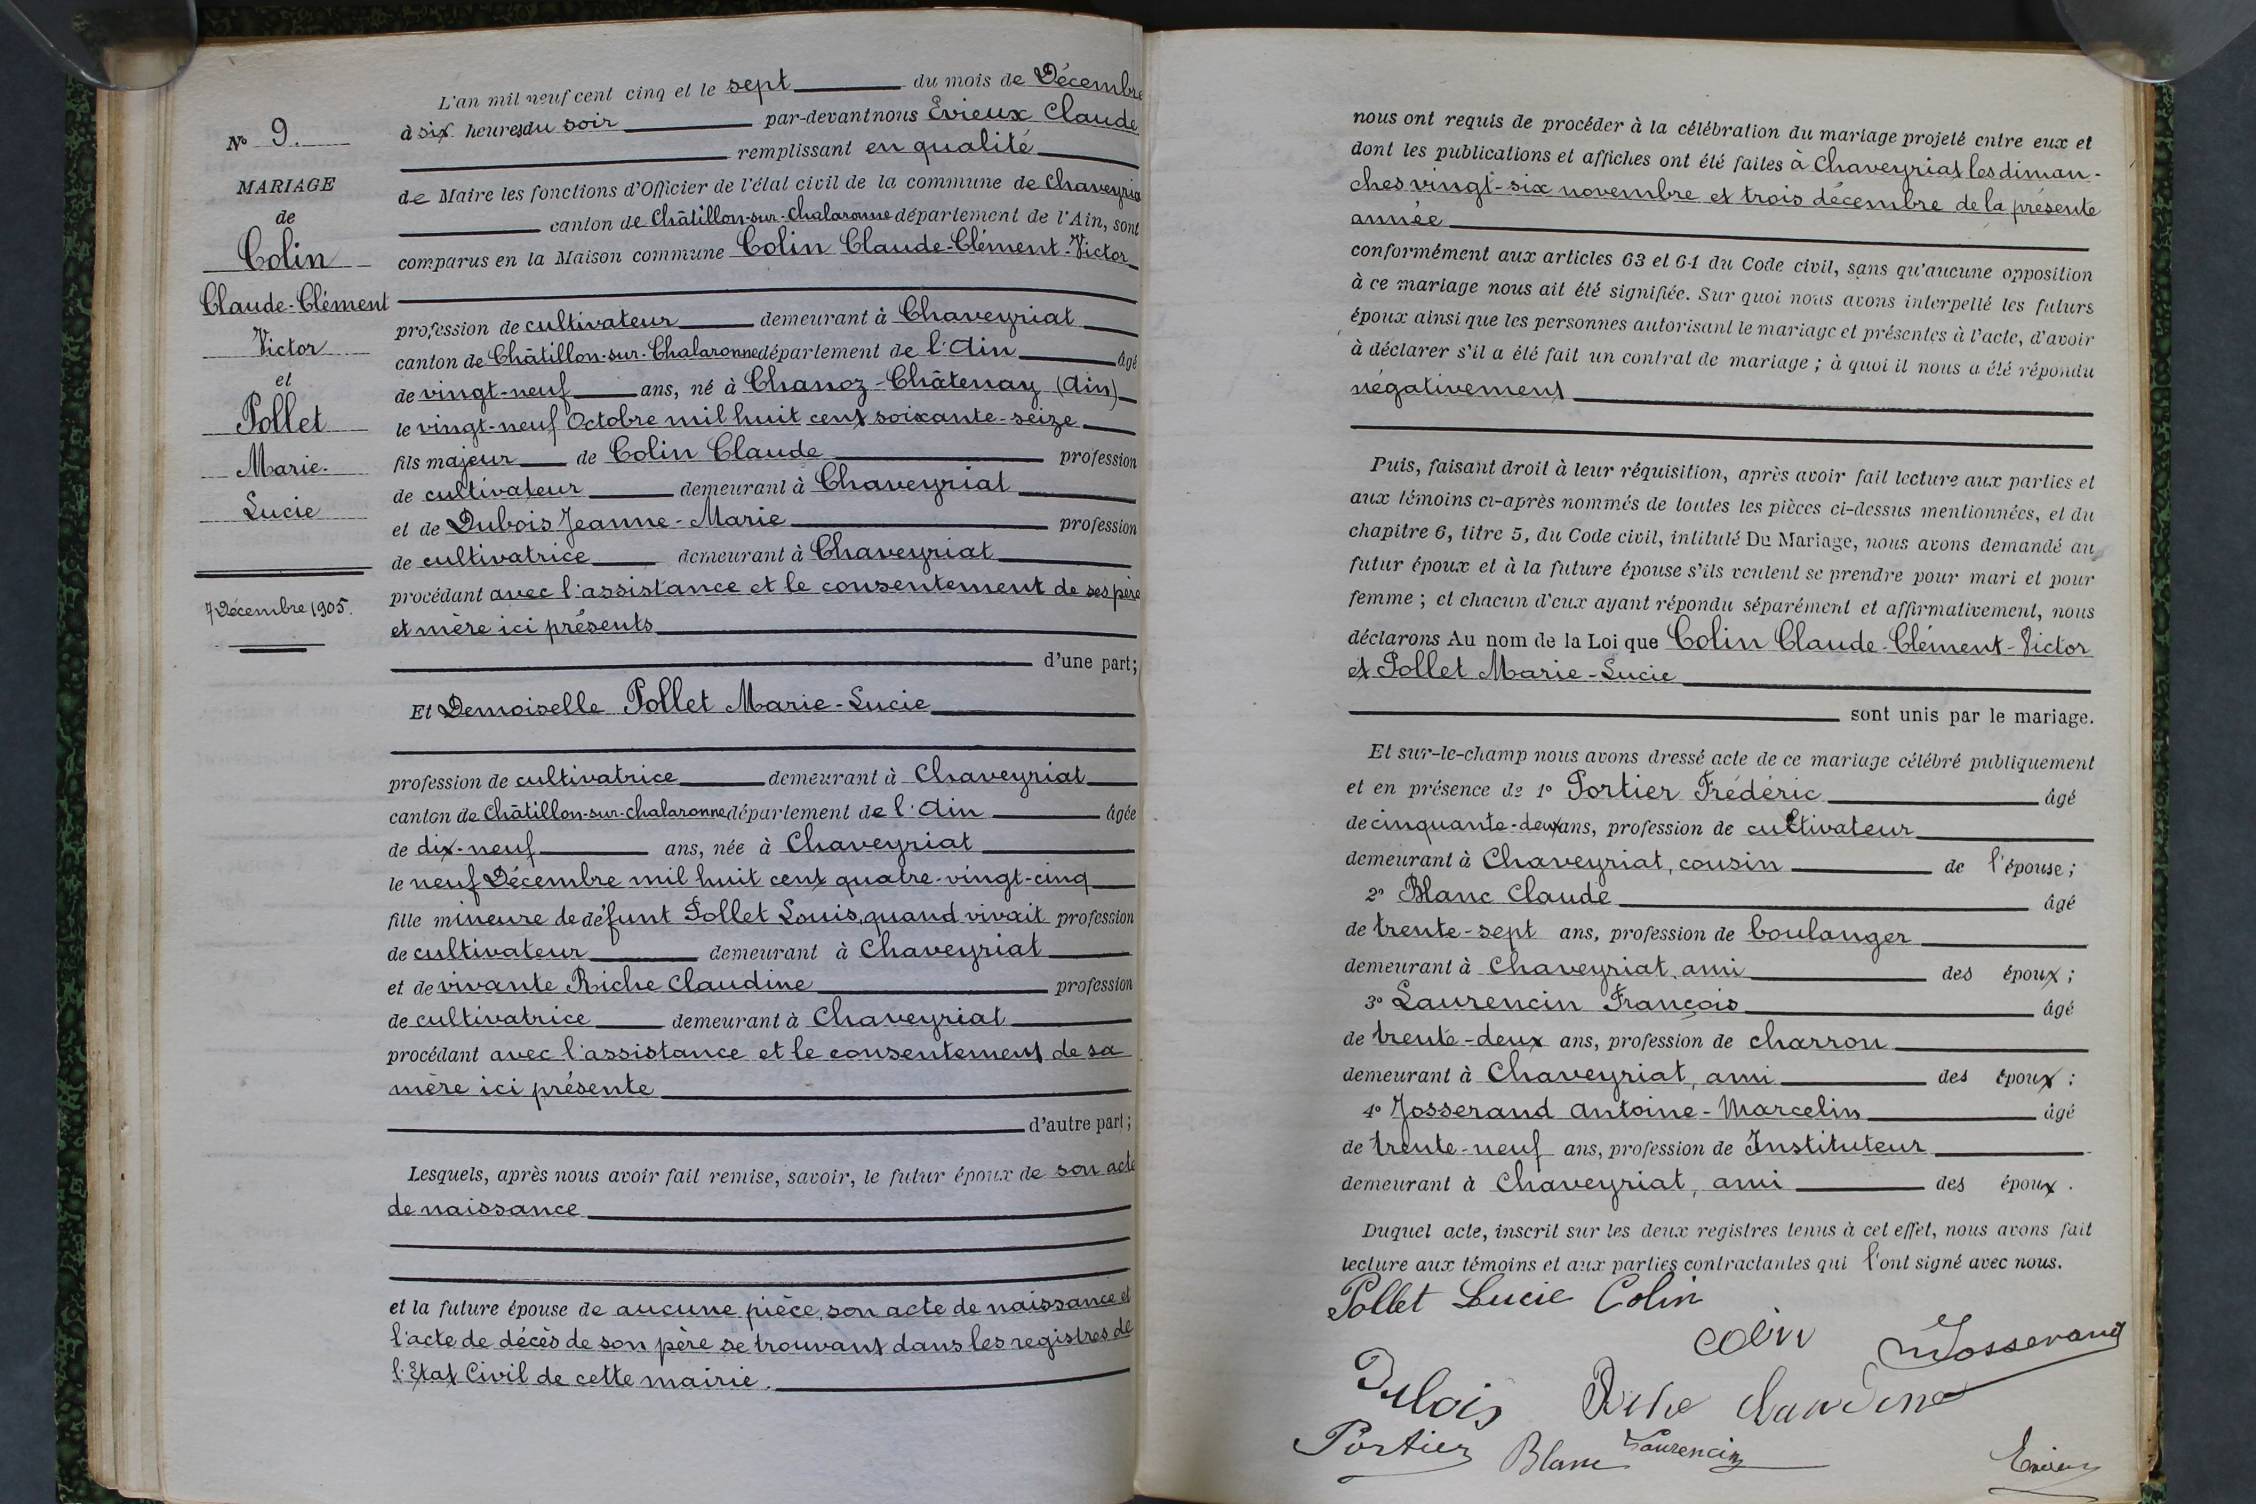 N° 9.
MARIAGE
de
Colin
Claude-Clément
Victor
et
Pollet
Marie.
Lucie
7 Décembre 1905.
L'an mil neuf cent cinq et le sept du mois de Décembre
à six heures du soir par-devant nous Evieux Claude
remplissant en qualité
de Maire les fonctions d'Officier de l'état civil de la commune de Chaveyria
canton de Châtillon-sur-Chalaronne département de l'Ain, sont
comparus en la Maison commune Colin Claude-Clément-Victor
profession de cultivateur demeurant à Chaveyriat
canton de Châtillon-sur-Chalaronne département de l'Ain âgé
de vingt-neuf ans, né à Chanoz-Châtenay (Ain)
le vingt-neuf Octobre mil huit cent soixante-seize
fils majeur de Colin Claude profession
de cultivateur demeurant à Chaveyriat
et de Dubois Jeanne-Marie profession
de cultivatrice demeurant à Chaveyriat
procédant avec l'assistance et le consentement de ses père
et mère ici présents
d'une part;
Et Demoiselle Pollet Marie-Lucie
profession de cultivatrice demeurant à Chaveyriat
canton de Châtillon-sur-chalaronne département de l'Ain âgée
de dix-neuf ans, née à Chaveyriat
le neuf Décembre mil huit cent quatre-vingt-cinq
fille mineure de défunt Pollet Louis, quand vivait profession
de cultivateur demeurant à Chaveyriat
et de vivante Riche Claudine profession
de cultivatrice demeurant à Chaveyriat
procédant avec l'assistance et le consentement de sa
mère ici présente
d'autre part;
Lesquels, après nous avoir fait remise, savoir, le futur époux de son acte
de naissance
et la future épouse de aucune pièce, son acte de naissance et
l'acte de décès de son père se trouvant dans les registres de
l'Etat Civil de cette mairie.
nous ont requis de procéder à la célébration du mariage projeté entre eux et
dont les publications et affiches ont été faites à Chaveyriat les diman-
ches vingt-six novembre et trois décembre de la présente
année
conformément aux articles 63 et 64 du Code civil, sans qu'aucune opposition
à ce mariage nous ait été signifiée. Sur quoi nous avons interpellé les futurs
époux ainsi que les personnes autorisant le mariage et présentes à l'acte, d'avoir
à déclarer s'il a été fait un contrat de mariage ; à quoi il nous a été répondu
négativement
Puis, faisant droit à leur réquisition, après avoir fait lecture aux parties et
aux témoins ci-après nommés de toutes les pièces ci-dessus mentionnées, et du
chapitre 6, titre 5, du Code civil, intitulé Du Mariage, nous avons demandé au
futur époux et à la future épouse s'ils veulent se prendre pour mari et pour
femme ; et chacun d'eux ayant répondu séparément et affirmativement, nous
déclarons Au nom de la Loi que Colin Claude-Clément-Victor
et Pollet Marie-Lucie
sont unis par le mariage.
Et sur-le-champ nous avons dressé acte de ce mariage célébré publiquement
et en présence de 1° Portier Frédéric âgé
de cinquante-deux ans, profession de cultivateur
demeurant à Chaveyriat, cousin de l'épouse;
2° Blanc Claude âgé
de trente-sept ans, profession de boulanger
demeurant à Chaveyriat, ami des époux;
3° Laurencin François âgé
de trente-deux ans, profession de charron
demeurant à Chaveyriat, ami des époux;
4° Josserand Antoine-Marcelin âgé
de trente-neuf ans, profession de Instituteur
demeurant à Chaveyriat, ami des époux.
Duquel acte, inscrit sur les deux registres tenus à cet effet, nous avons fait
lecture aux témoins et aux parties contractantes qui l'ont signé avec nous.
Pollet Lucie Colin
Colin Josserand
Dubois Riche Claudine
Portier Blanc Laurencin Evieux